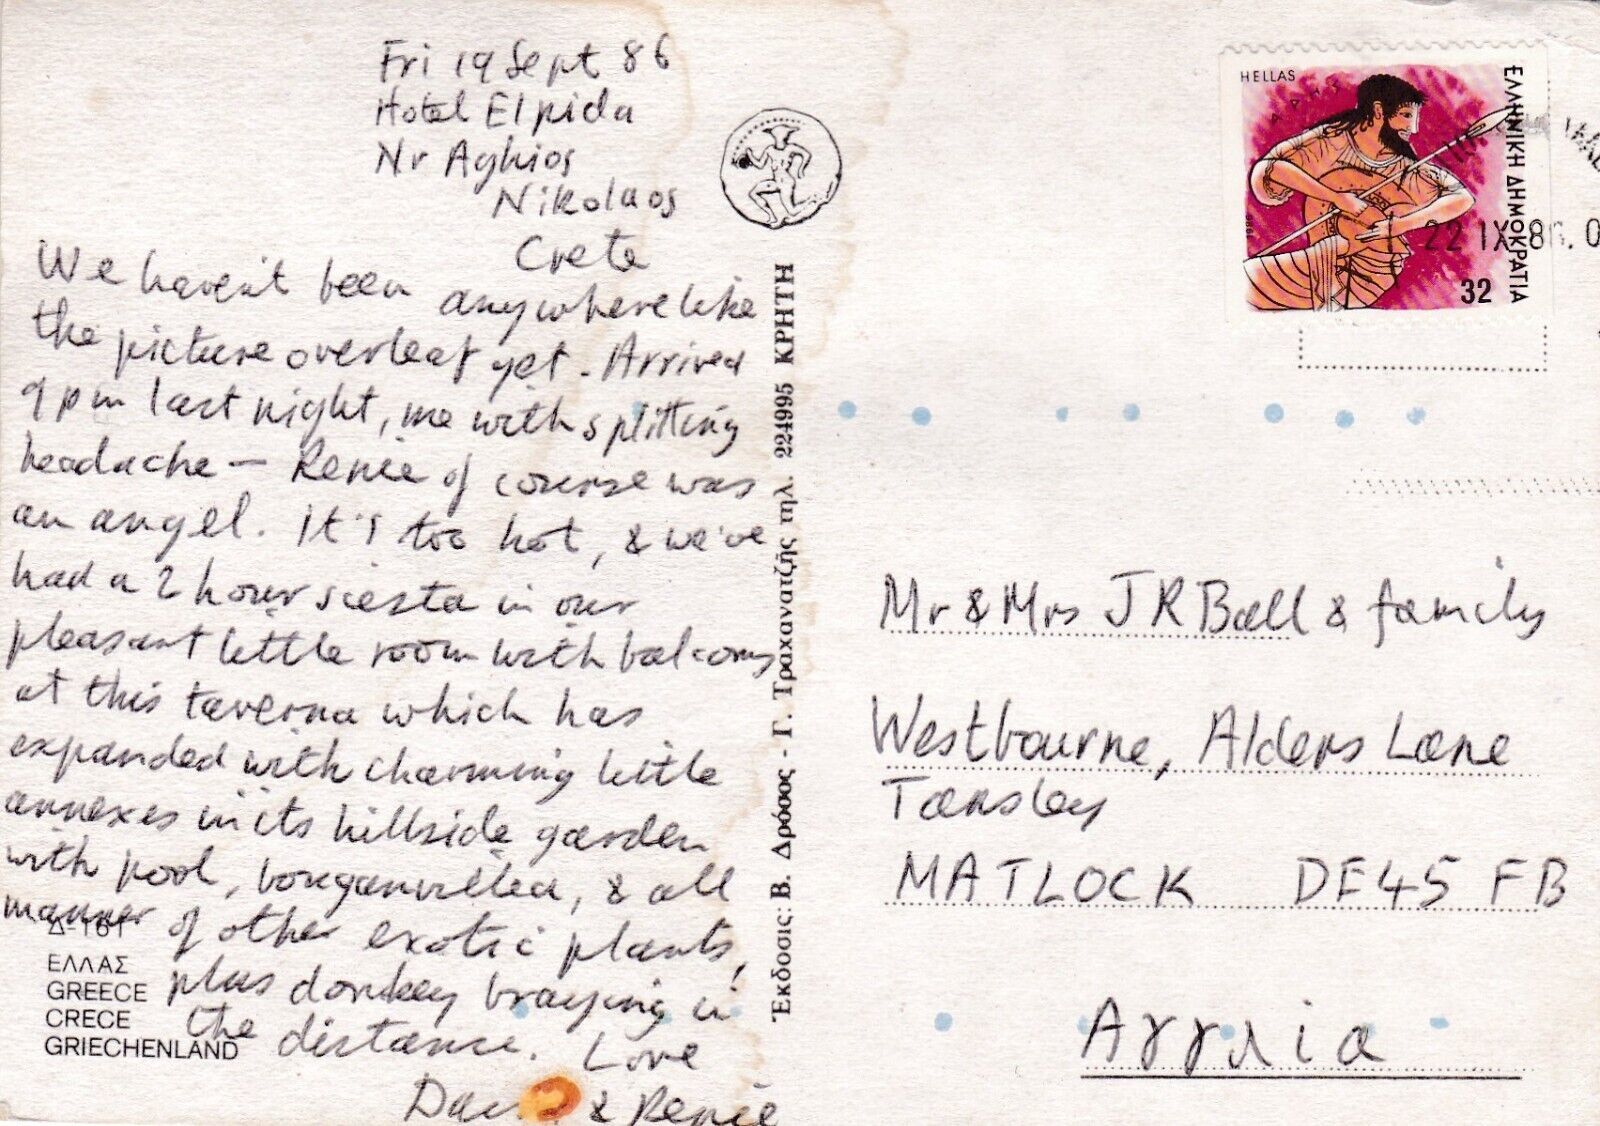 Fri 19 Sept 86
Hotel Elpida
Nr Aghios
Nikolaos
Crete
We haven't been anywhere like
the picture overleaf yet. Arrived
9pm last night, me with splitting
headache - Renie of course was
an angel. It's too hot, & we've
had a 2 hour siesta in our
pleasant little room with balcony
at this taverna which has
expanded with charming little
annexes in its hillside garden
with pool, bouganvillea, & all
manner of other exotic plants,
plus donkey braying in
the distance. Love
& Renie
Δ-161
ΕΛΛΑΣ
GREECE
CRECE
GRIECHENLAND
Ἐκδοσις: Β. Δρόσος - Γ. Τραχανατζῆς τηλ. 224995 ΚΡΗΤΗ
HELLAS
ΑΡΗΣ
ΕΛΛΗΝΙΚΗ ΔΗΜΟΚΡΑΤΙΑ
1986
32
22 IX 86.0
Mr & Mrs J R Ball & family
Westbourne, Alders Lane
Tansley
MATLOCK DE45 FB
Αγγλια